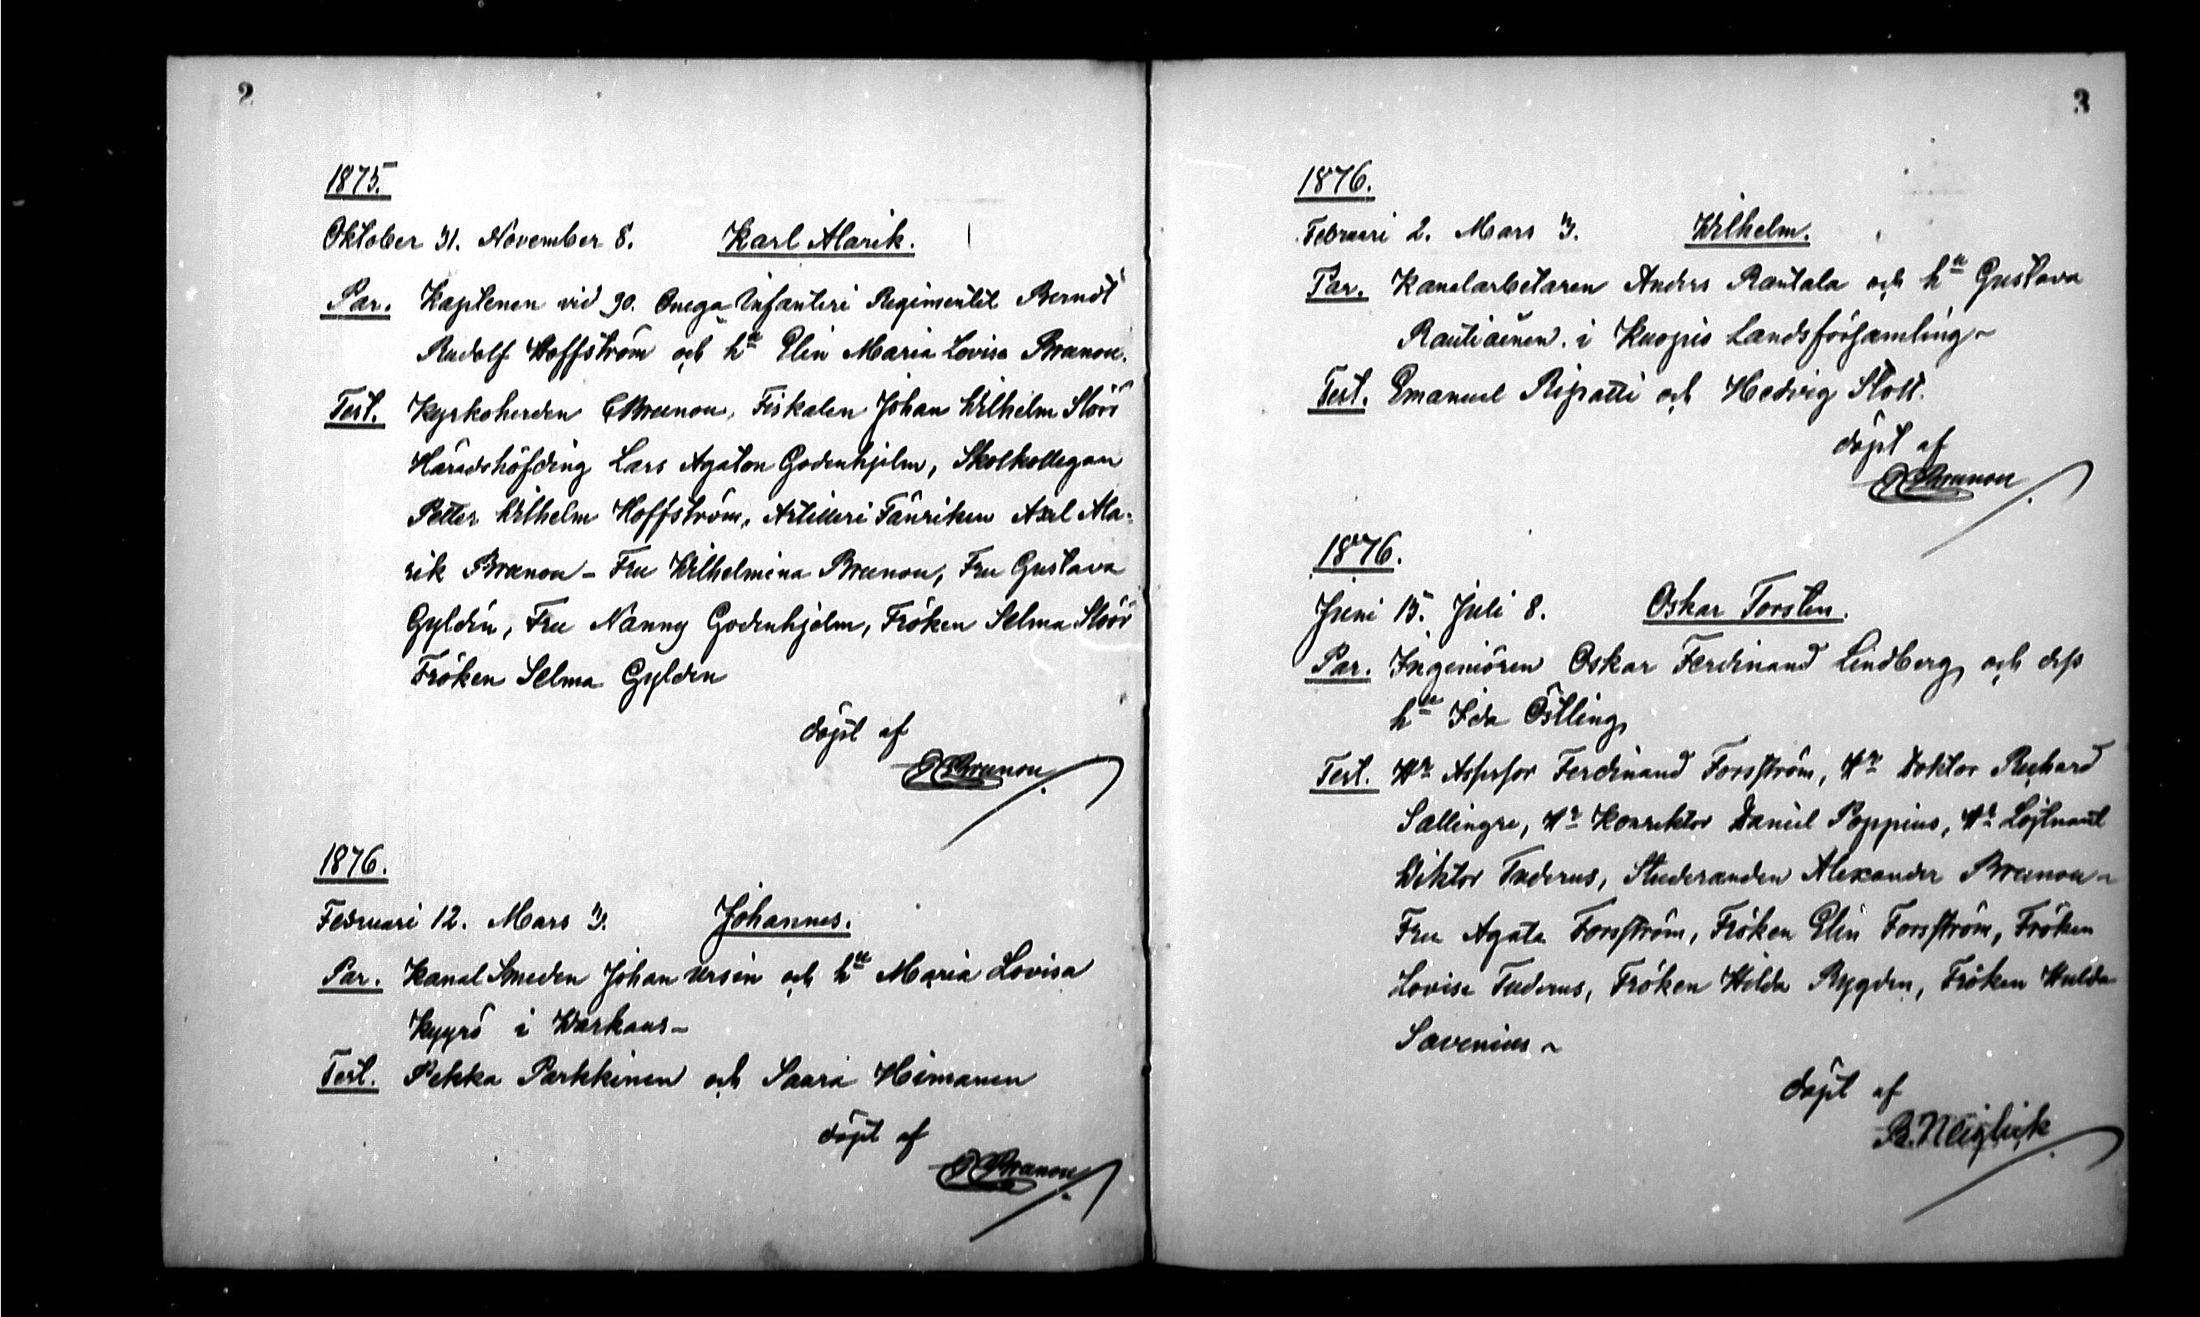 2
1875.
Oktober 31. November 8. Karl Alarik.
Par. Kaptenen vid 90. Onega Infanteri Regimentet Berndt
Rudolf Hoffström och hu Elin Maria Lovisa Brunou.
Test. Kyrkoherden Brunou, Fiskalen Johan Wilhelm Stöör
Häradshöfding Lars Agaton Godenhjelm, Skolkollegan
Petter Wilhelm Hoffström, Artilleri Fänriken Axel Ala-
rik Brunou – Fru Wilhelmina Brunou, Fru Gustava
Gyldén, Fru Nanny Godenhjelm, Fröken Selma Stöör
Fröken Selma Gyldén
döpt af
Brunou
1876.
Februari 12. Mars 3. Johannes.
Par. Kanal Smeden Johan Ursin och hu Maria Lovisa
Kyyrö i Warkaus –
Test. Pekka Parkkinen och Saara Heimanen
döpt af
Brunou
3
1876.
Februari 2. Mars 3. Wilhelm.
Par. Kanalarbetaren Anders Rautala och hu Gustava
Rautiainen i Kuopio Landsförsamling –
Test. Emanuel Ripatti och Hedvig Stott.
döpt af
Brunou
1876.
Juni 15. Juli 8. Oskar Torsten.
Par. Ingeniören Oskar Ferdinand Lindberg och dess
hu Ida Östling
Test. Hr Assessor Ferdinand Forsström, Hr Doktor Richard
Sallingre, Hr Korrektor Daniel Poppius, Hr Löjtnant
Wiktor Tuderus, Studeranden Alexander Brunou –
Fru Agata Forsström, Fröken Elin Forsström, Fröken
Lovise Tuderus, Fröken Hilda Bygdén, Fröken Hulda
Savenius –
döpt af
B. Neiglick